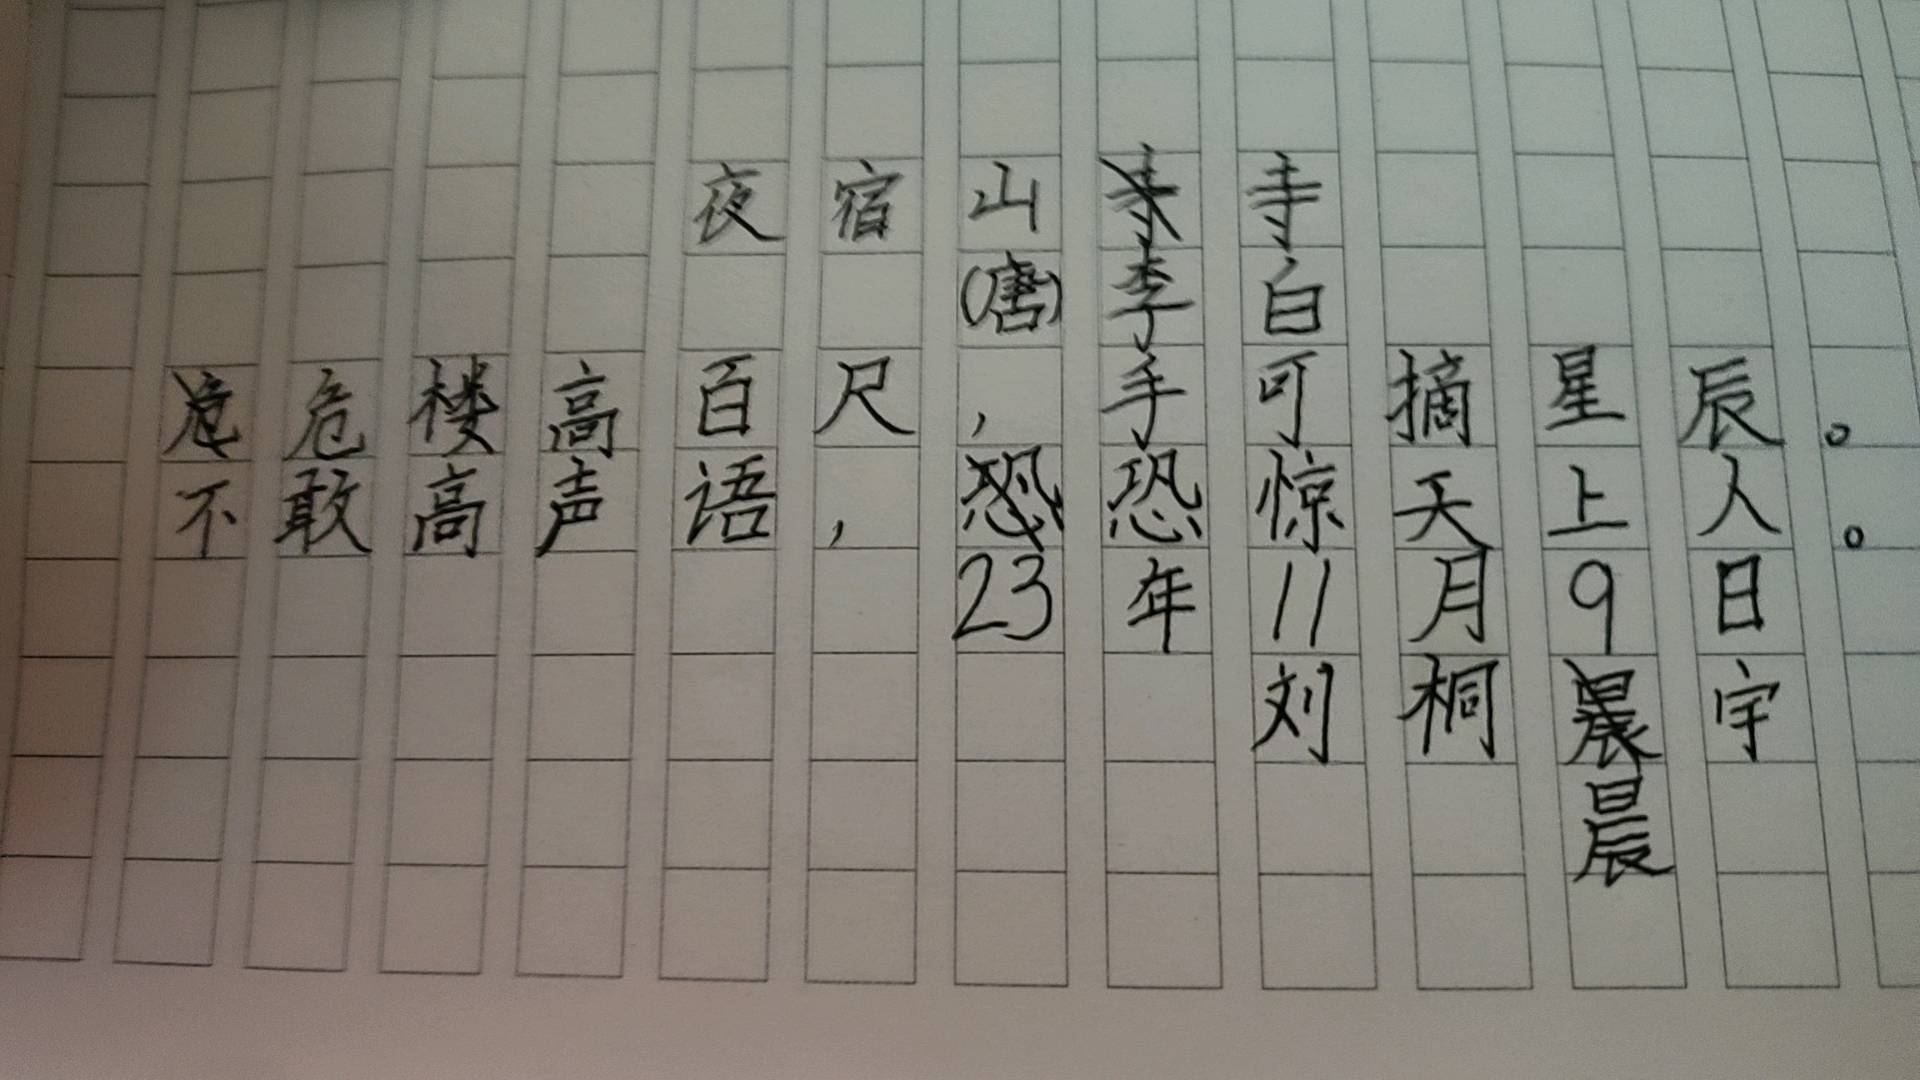 夜宿山寺
(唐)李白
危楼高百尺，手可摘星辰。
不敢高声语，恐惊天上人。
23年11月9日
刘桐宇
晨